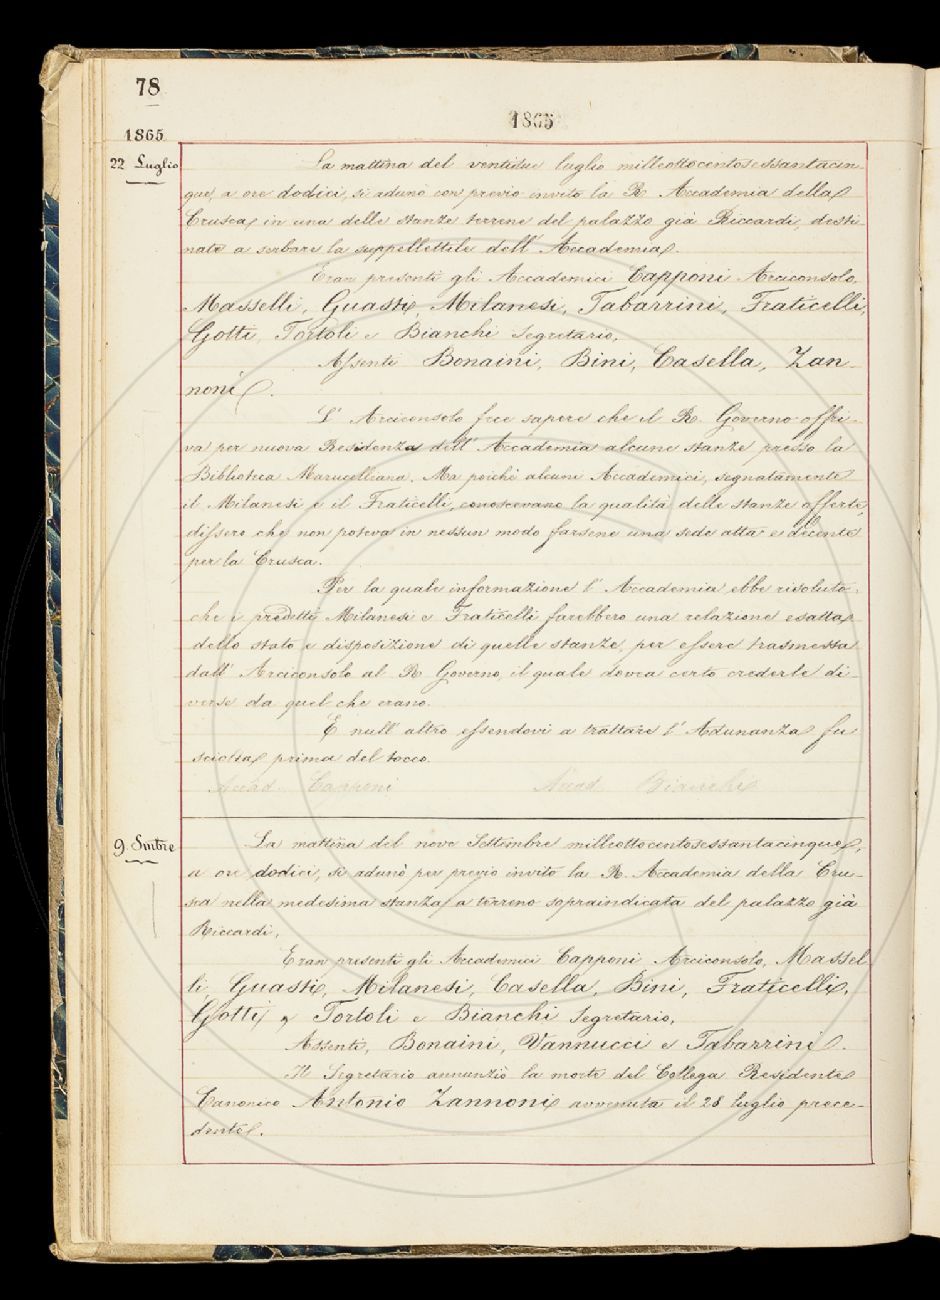 78
1865
1865
22 Luglio
La mattina del ventidue luglio milleottocentosessantacin-
que, a ore dodici, si adunò con previo invito la R. Accademia della
Crusca, in una delle stanze terrene del palazzo già Riccardi, desti-
nate a serbare la suppellettile dell' Accademia.
Eran presenti gli Accademici Capponi Arciconsolo,
Masselli, Guasti, Milanesi, Tabarrini, Fraticelli,
Gotti, Tortoli e Bianchi Segretario.
Assenti Bonaini, Bini, Casella, Zan-
noni.
L' Arciconsolo fece sapere che il R. Governo offri-
va per nuova Residenza dell' Accademia alcune stanze presso la
Biblioteca Marucelliana. Ma poichè alcuni Accademici, segnatamente
il Milanesi e il Fraticelli, conoscevano la qualità delle stanze offerte,
dissero che non poteva in nessun modo farsene una sede atta e decente
per la Crusca.
Per la quale informazione l' Accademia ebbe risoluto,
che i predetti Milanesi e Fraticelli farebbero una relazione esatta
dello stato e disposizione di quelle stanze, per essere trasmessa
dall' Arciconsolo al R. Governo, il quale dovea certo crederle di-
verse da quel che erano.
E null' altro essendovi a trattare l' Adunanza fu
sciolta prima del tocco.
Accad. Capponi Accad. Bianchi
9. Smbre
La mattina del nove Settembre milleottocentosessantacinque,
a ore dodici, si adunò per previo invito la R. Accademia della Cru-
sca nella medesima stanza a terreno sopraindicata del palazzo già
Riccardi.
Eran presenti gli Accademici Capponi Arciconsolo, Massel-
li, Guasti, Milanesi, Casella, Bini, Fraticelli,
Gotti, Tortoli e Bianchi Segretario.
Assenti, Bonaini, Vannucci e Tabarrini.
Il Segretario annunziò la morte del Collega Residente
Canonico Antonio Zannoni avvenuta il 28 luglio prece-
dente.